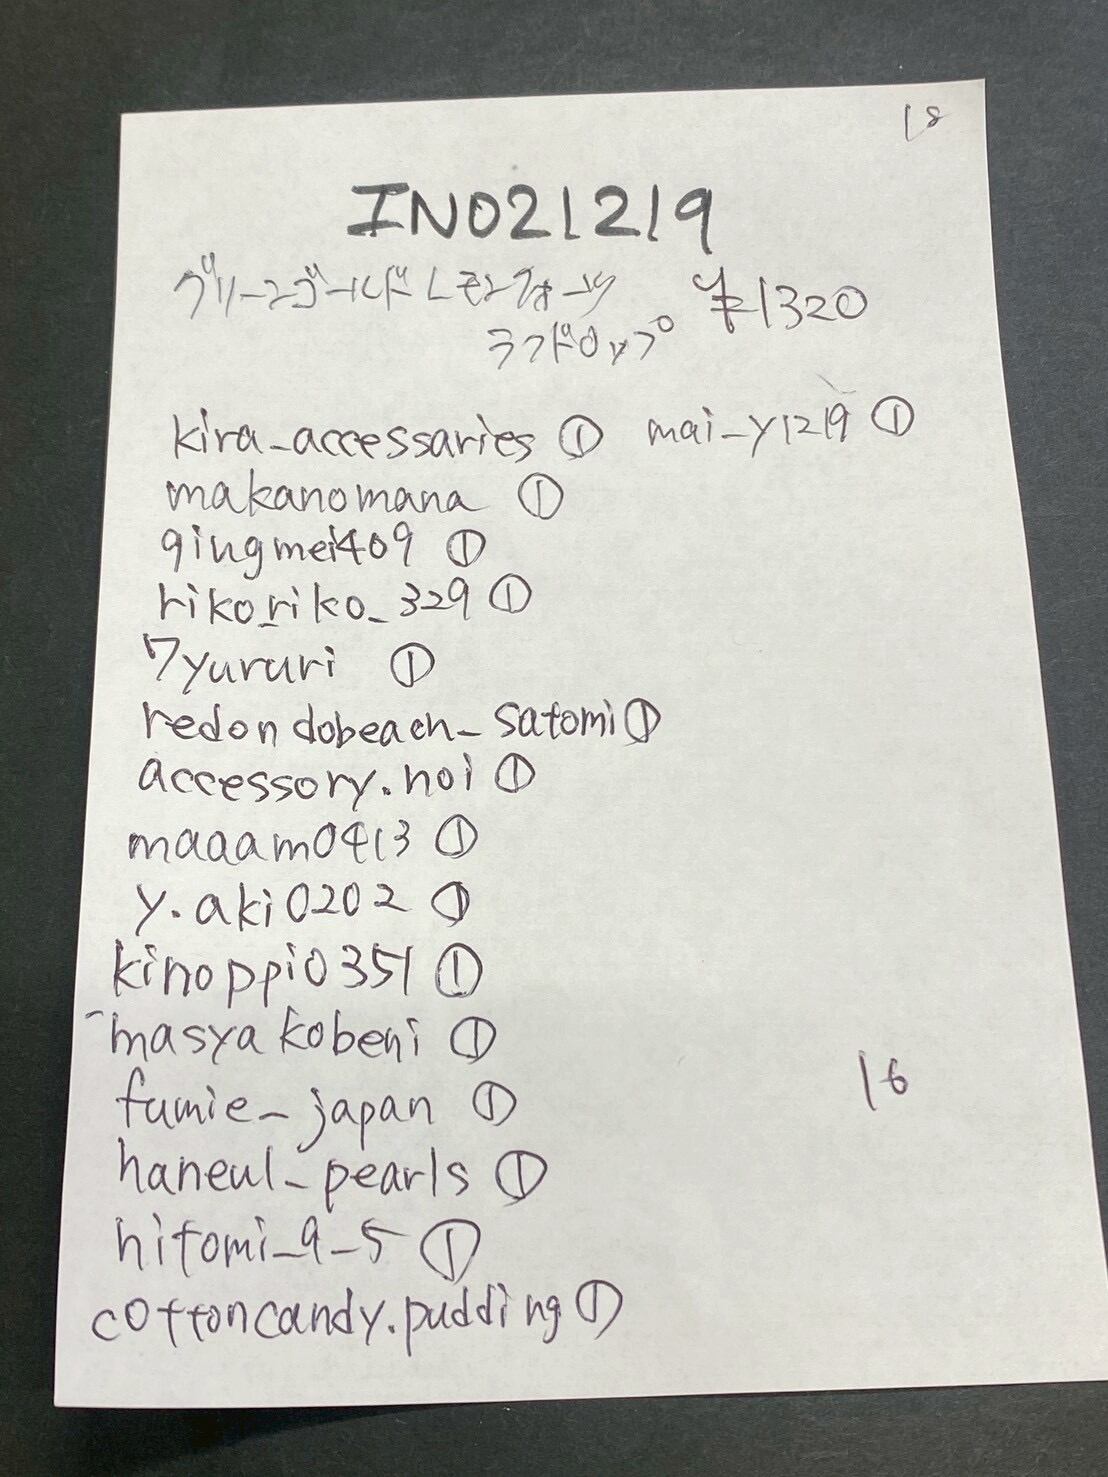 18
INO21219
グリーンゴールドレモンクォーツ ¥1320
ラフドロップ
kira_accessaries ① mai_y1219 ①
makanomana ①
qingmei409 ①
riko_riko_329 ①
7yururi ①
redondobeach_satomi ①
accessory.noi ①
maaam0413 ①
y.aki0202 ①
kinoppi0351 ①
masyakobeni ①
fumie_japan ①
16
haneul_pearls ①
hitomi_9_5 ①
cottoncandy.pudding ①